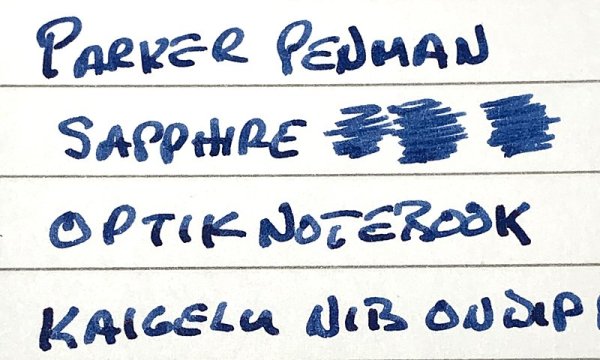 PARKER PENMAN
SAPPHIRE
OPTIK NOTEBOOK
KAIGELU NIB ON DIP